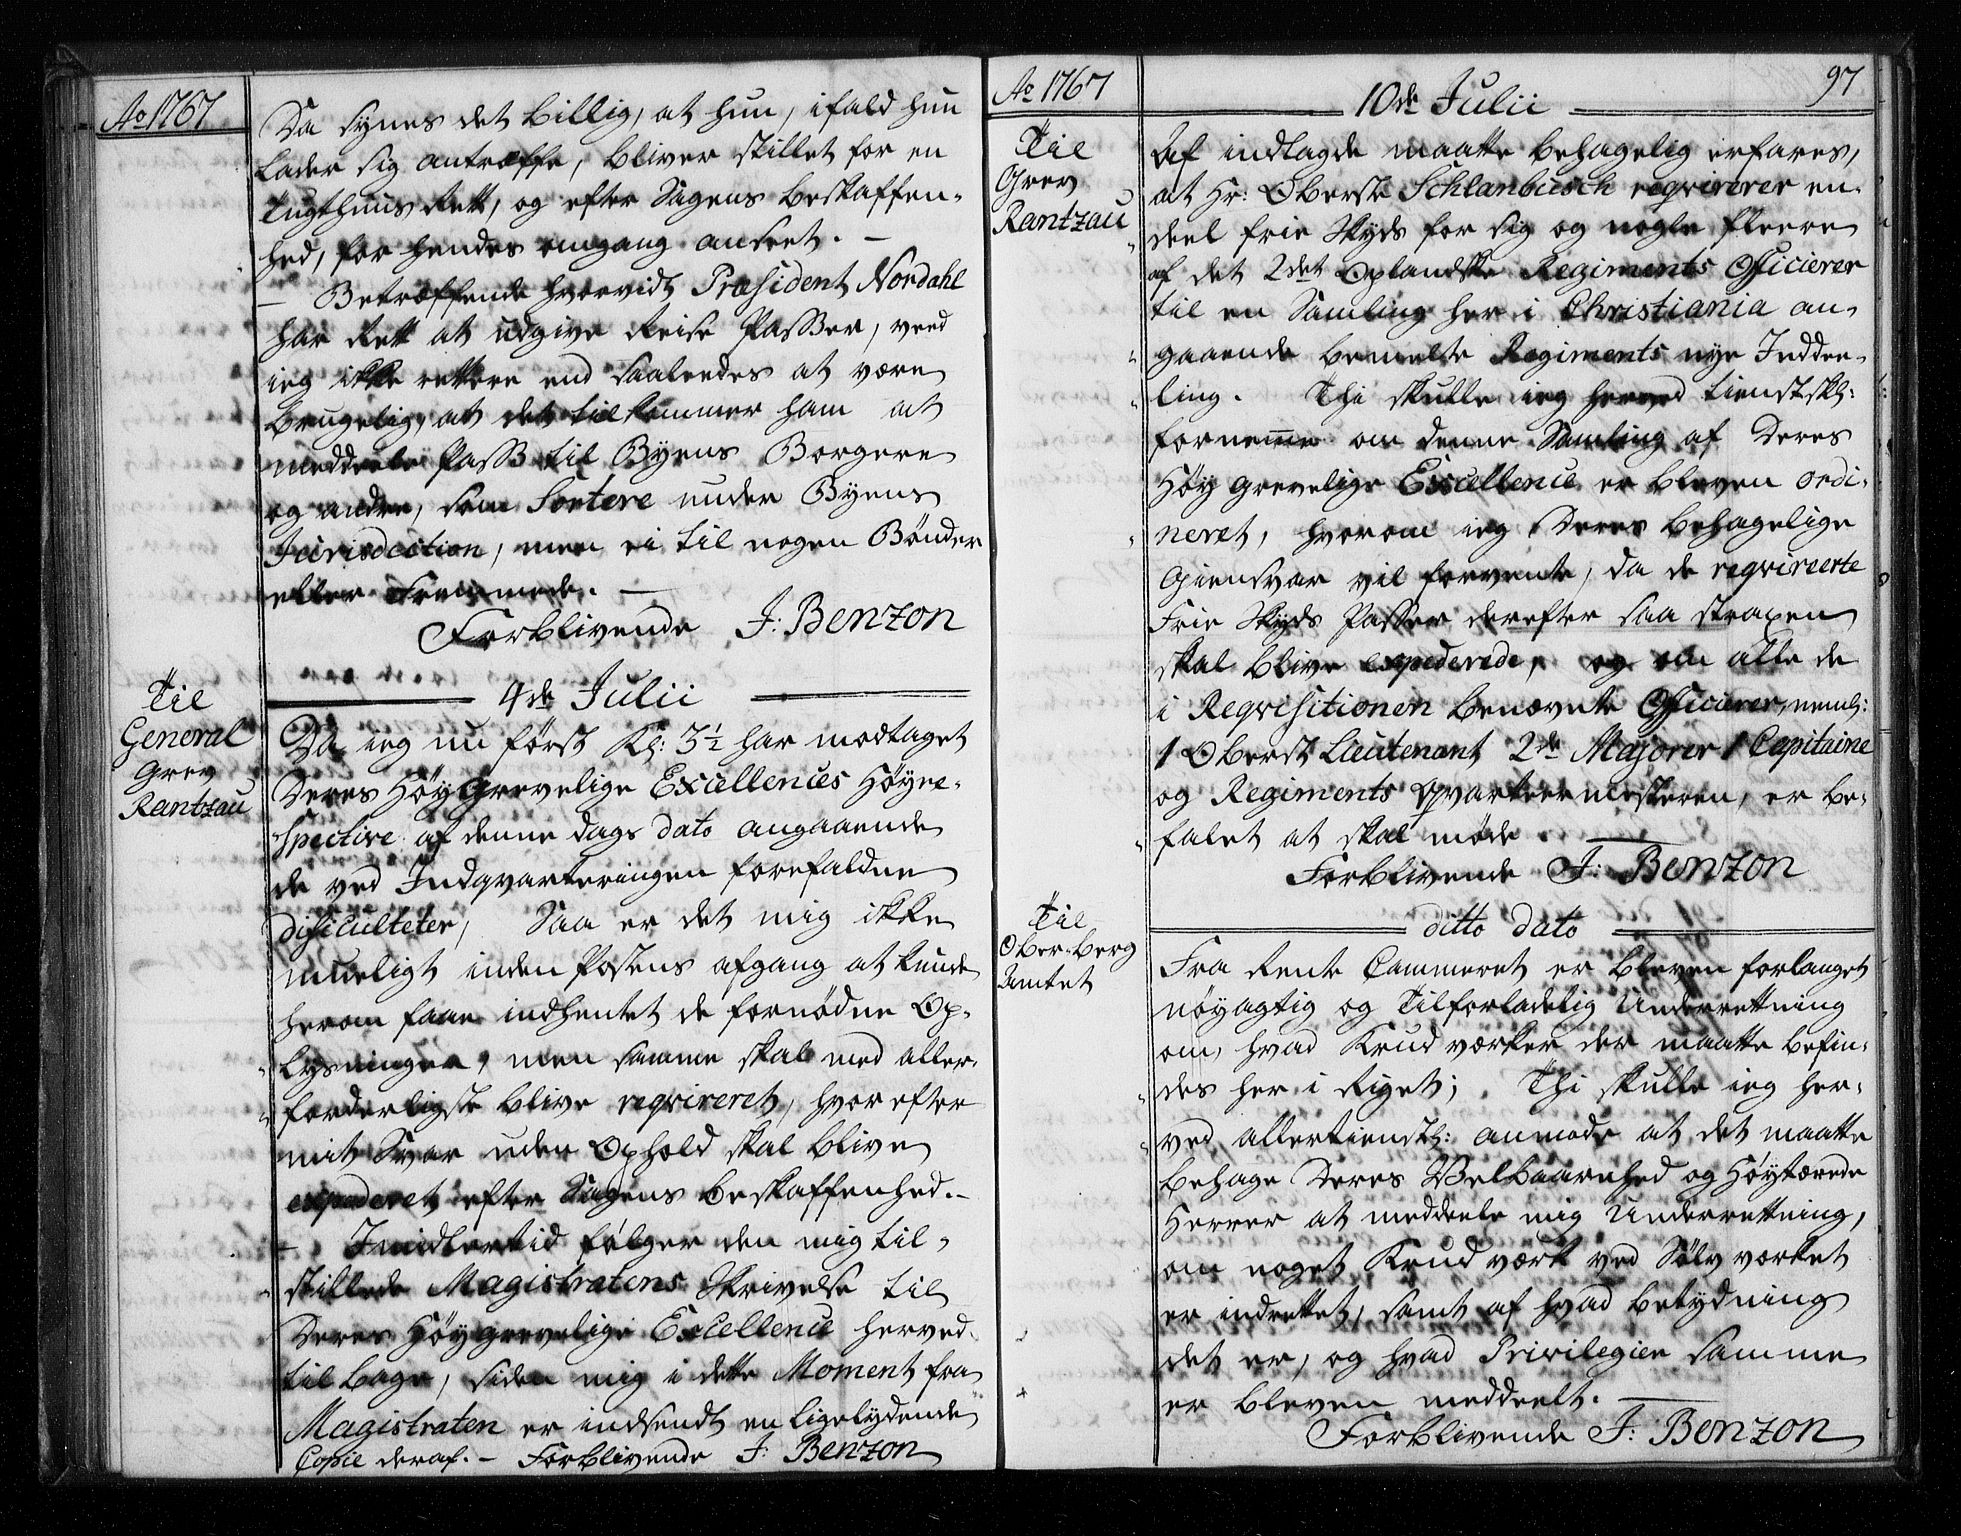 Ao 1767
Da synes det billig, at hun, ifald hun
lader sig antræffe, bliver stillet for en
Tugthuus Rett, og efter Sagens beskaffen-
hed, for hendes omgang anseet. –
– Betræffende hvorvidt Præsident Nordahl
har Rett at udgive Reise Passer, veed
ieg ikke rettere end saaledes at være
brugelig, at det tilkommer ham at
meddeele Pass til Byens Borgere
og andre, som Sortere under Byens
Jurisdiction, men ei til nogen Bønder
eller Fremmede. –
Forblivende J: Benzon
Til
General
Grev
Rantzau
4de Julii
Da ieg nu først Kl: 3½ har modtaget
Deres Høy Grevelige Excellences Høyre-
spective af denne dags dato angaaende
de ved Indqvarteringen forefaldne
difficulteter, Saa er det mig ikke
mueligt inden Postens afgang at kunde
herom faae indhentet de fornødne Op-
lysninger, men samme skal med aller-
forderligste blive reqvireret, hvorefter
mit Svar uden Ophold skal blive
expederet efter Sagens beskaffenhed. –
– Imidlertid følger den mig til-
stillede Magistratens Skrivelse til
Deres Høy grevelige Excellence herved
tilbage, siden mig i dette Moment fra
Magistraten er indsendt en ligelydende
Copie deraf. – Forblivende J: Benzon
Ao 1767
10de Julii
97
Til
Grev
Rantzau
Af indlagde maatte behagelig erfares,
at Hr: Oberste Schlanbusch reqvirerer en-
deel frie Skyds for sig og nogle fleere
af det 2det Oplandske Regiments Officierer
til en Samling her i Christiania an-
gaaende bemelte Regiments nye Inddee-
ling. Thi skulle ieg herved tienstskl:
fornemme om denne Samling af Deres
Høy Grevelige Excellence er bleven ordi-
neret, hvorom ieg Deres behagelige
Giensvar vil forvente, da de reqvireerte
Frie Skyds Passer derefter saa strapen
skal blive expederede, og om alle de
i Reqvisitionen benævnte Officierer, neml:
1 Oberst Lieutenant 2de Majorer 1 Capitaine
og Regiments Qvarteermesteren, er be-
falet at skal møde. –
Forblivende J: Benzon
Til
Ober-Berg
Amtet
ditto dato
Fra Rente Cammeret er bleven forlanget
nøyagtig og Tilforladelig Underrettning
om, hvad Krudværker der maatte befin-
des her i Riget; Thi skulle ieg her-
ved allertienstl: anmode at det maatte
behage Deres Velbaarnhed og Høystærede
Herrer at meddeele mig Underrettning,
om noget Krudværk ved Sølvværket
er indrettet, samt af hvad betydning
det er, og hvad Privilegier samme
er bleven meddeelt. –
Forblivende J: Benzon